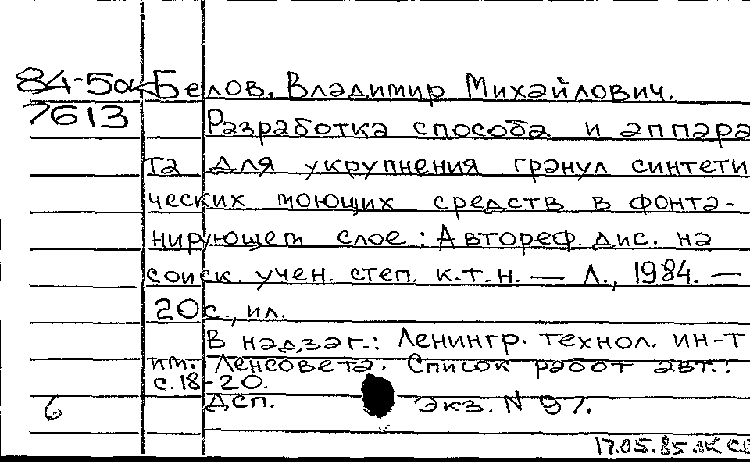 84-5ак Белов, Владимир Михайлович.
7613 Разработка способа и аппара
та для укрупнения гранул синтети
ческих моющих средств в фонта-
нирующем слое: Автореф. дис. на
соиск. учен. степ. к.т.н. — Л., 1984. —
20 с., ил.
В надзаг.: Ленингр. технол. ин-т
им. Ленсовета. Список работ авт.:
с. 18-20.
6 Дсп. Экз. N 97.
17.05.85